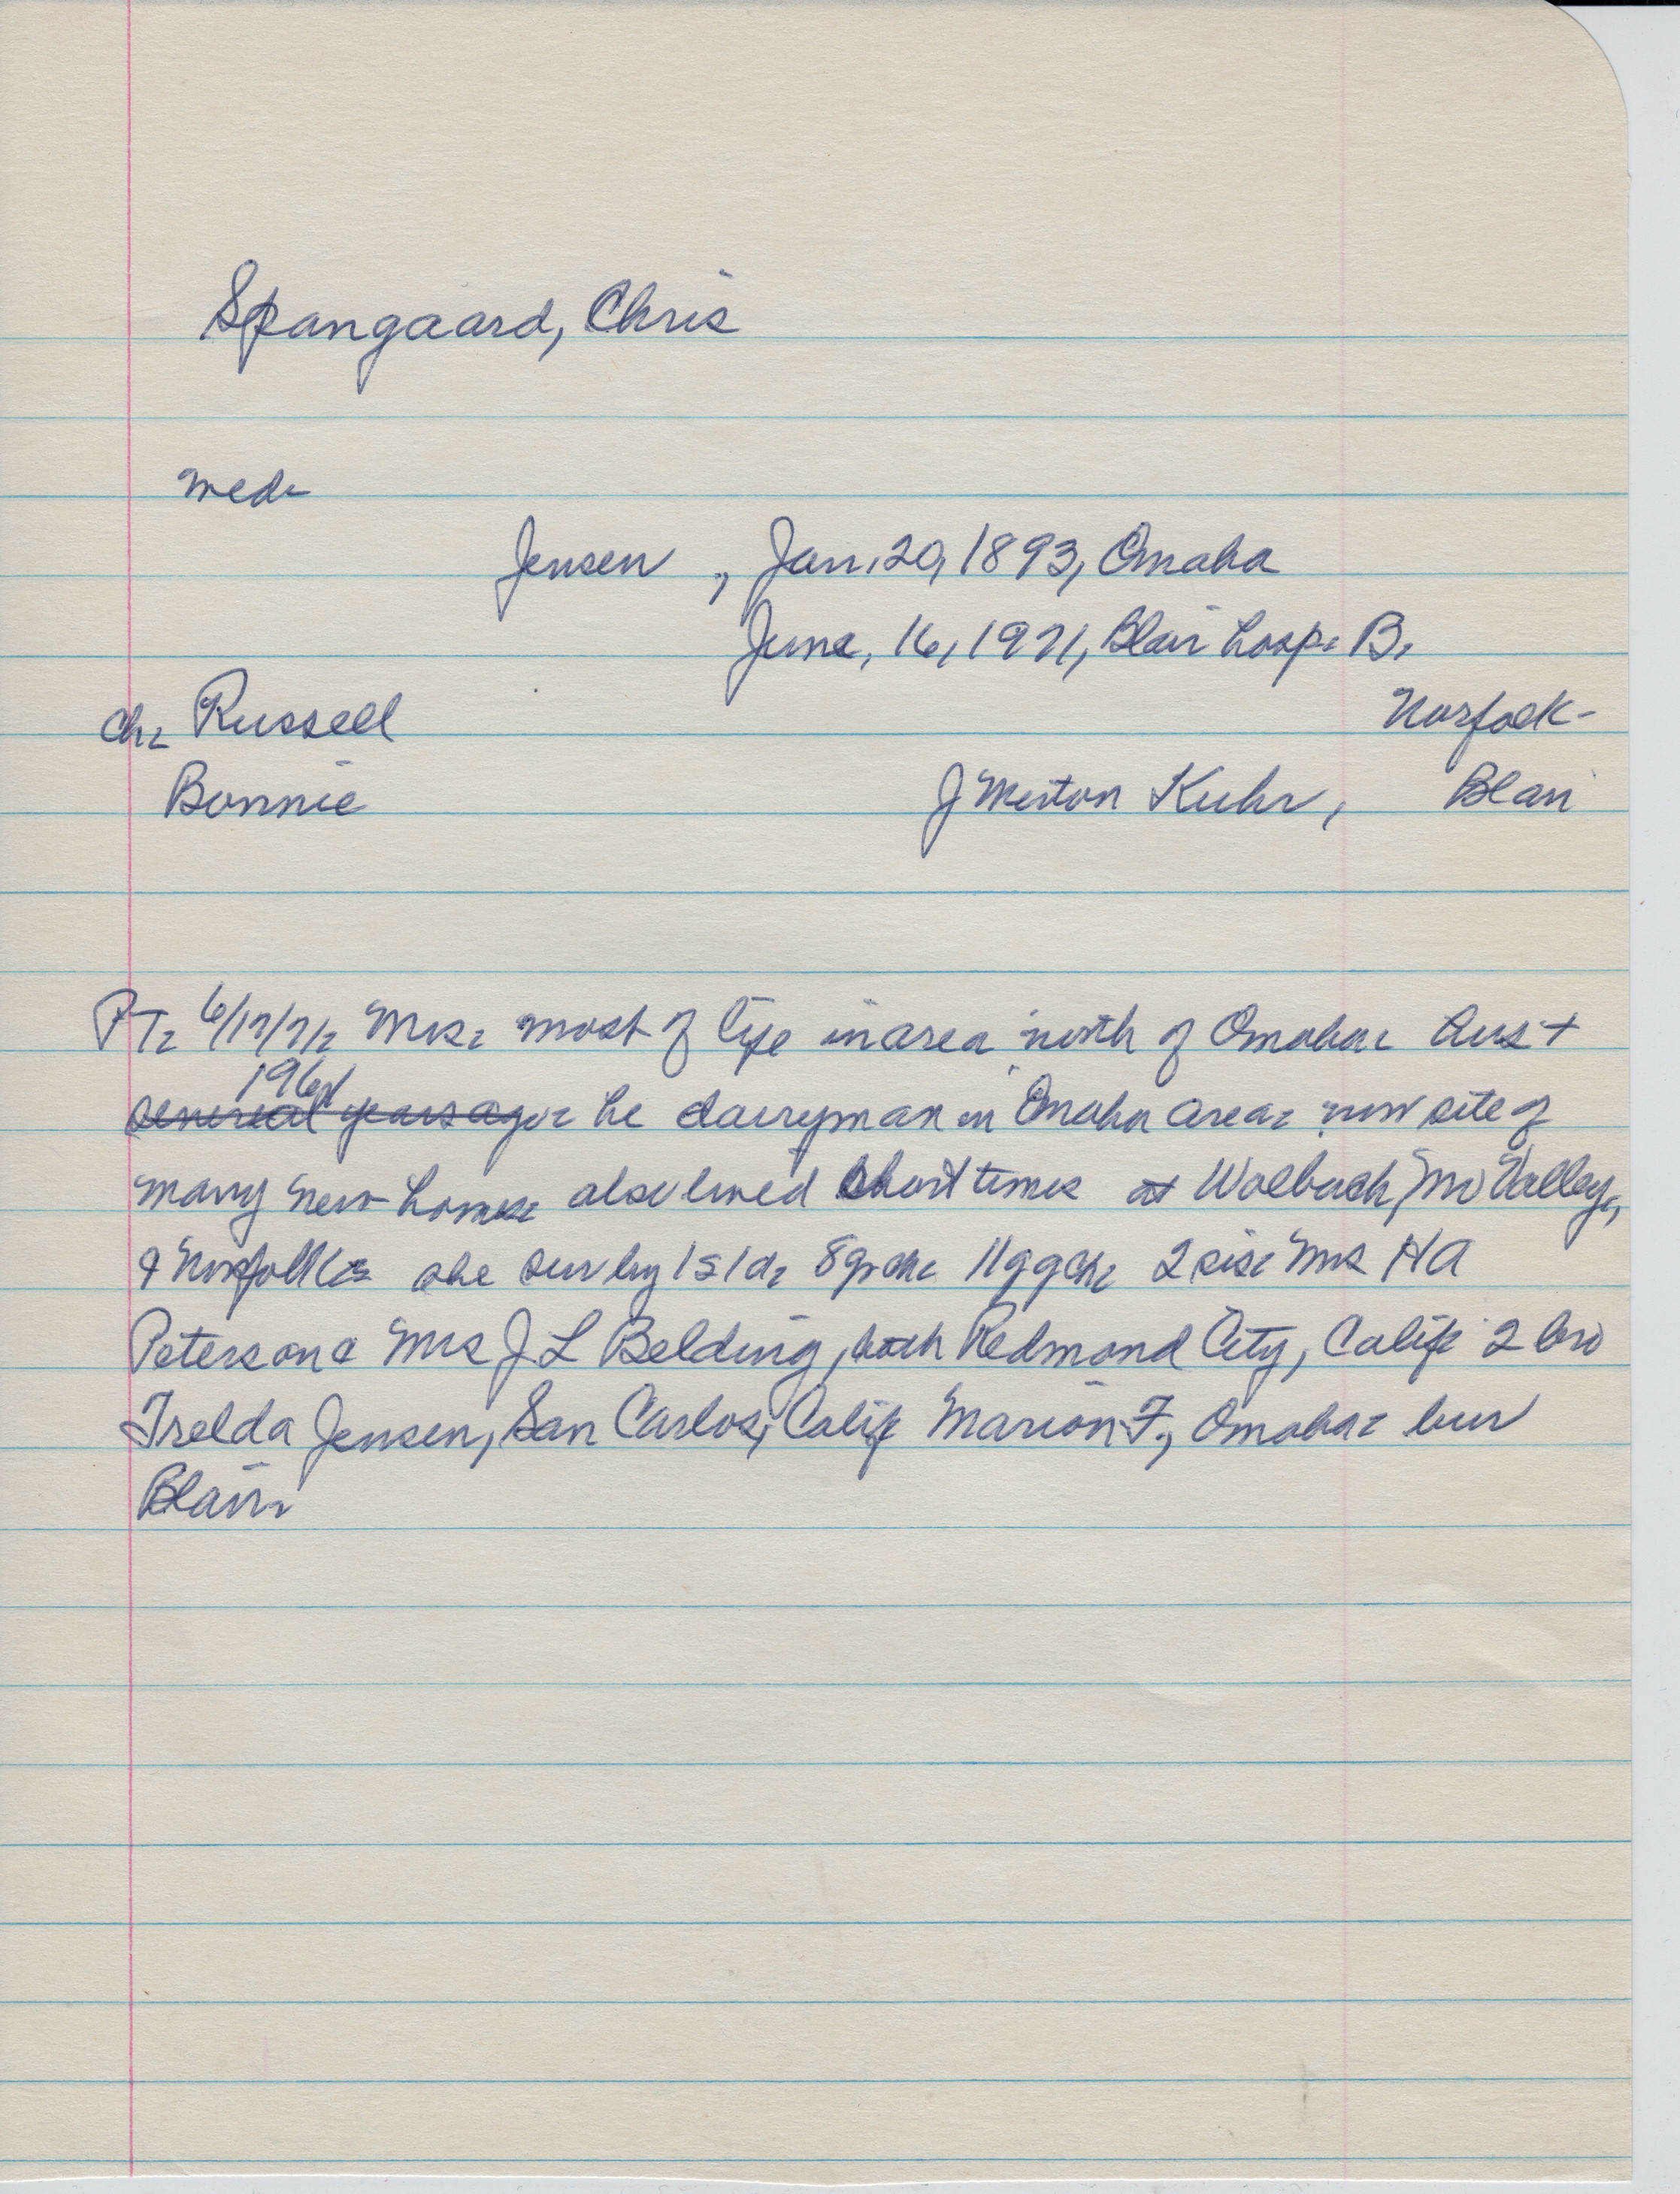 Spangaard, Chris
med.
Jensen , Jan. 20, 1893, Omaha
June, 16, 1971, Blair hosp. B.
ch. Russell Norfolk-
Bonnie J Merton Kuhr, Blair
PT. 6/17/71. Mrs. most of life in area north of Omaha. hus +
1961
several years ago. he dairyman in Omaha area. now site of
many new homes. also lived short times at Wolbach, Mo Valley,
& Norfolk. she sur by 1 s 1 d. 8 gr ch. 11 g g ch. 2 sis. Mrs H A
Peterson & Mrs J L Belding, both Redmond City, Calif 2 bro
Trelda Jensen, San Carlos, Calif Marion F., Omaha. bur
Blair.